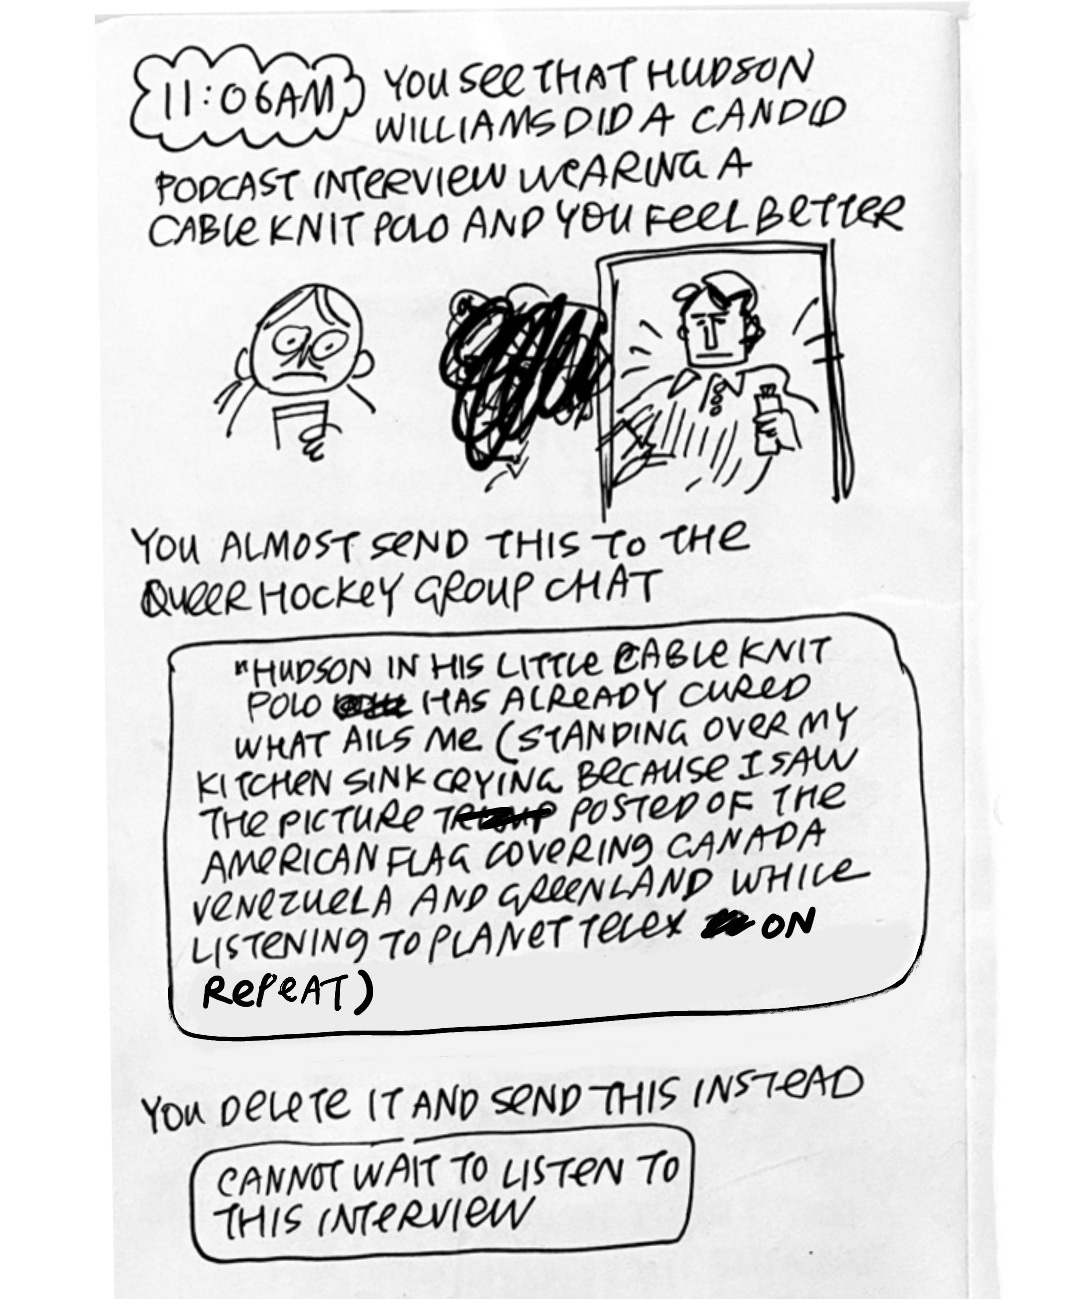 11:06AM YOU SEE THAT HUDSON
WILLIAMS DID A CANDID
PODCAST INTERVIEW WEARING A
CABLE KNIT POLO AND YOU FEEL BETTER
YOU ALMOST SEND THIS TO THE
QUEER HOCKEY GROUP CHAT
"HUDSON IN HIS LITTLE CABLE KNIT
POLO HAS ALREADY CURED
WHAT AILS ME (STANDING OVER MY
KITCHEN SINK CRYING BECAUSE I SAW
THE PICTURE TRUMP POSTED OF THE
AMERICAN FLAG COVERING CANADA
VENEZUELA AND GREENLAND WHILE
LISTENING TO PLANET TELEX ON
REPEAT)
YOU DELETE IT AND SEND THIS INSTEAD
CANNOT WAIT TO LISTEN TO
THIS INTERVIEW